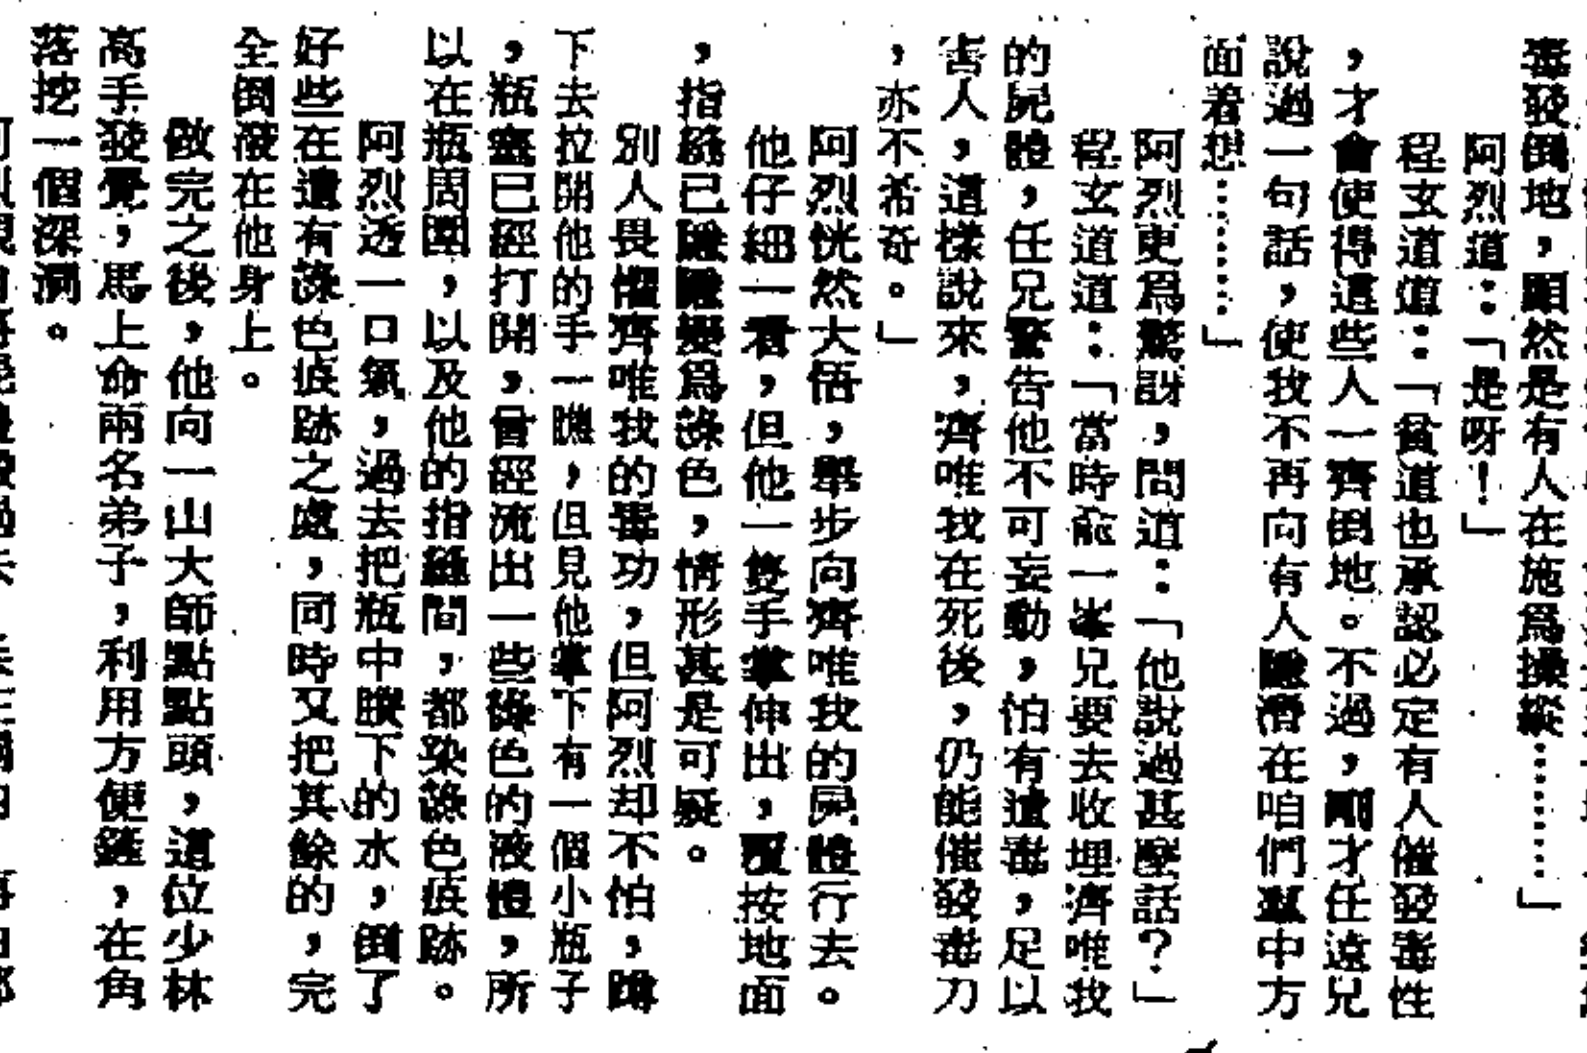 毒發倒地，顯然是有人在施爲操縱………」
阿烈道：「是呀！」
程玄道道：「貧道也承認必定有人催發毒性
，才會使得這些人一齊倒地。不過，剛才任遠兄
說過一句話，使我不再向有人隱潛在咱們羣中方
面着想………」
阿烈更爲驚訝，問道：「他說過甚麼話？」
程玄道道：「當時龐一峯兄要去收埋齊唯我
的屍體，任兄警告他不可妄動，怕有遺毒，足以
害人，這樣說來，齊唯我在死後，仍能催發毒力
，亦不希奇。」
阿烈恍然大悟，舉步向齊唯我的屍體行去。
他仔細一看，但他一隻手掌伸出，覆按地面
，指縫已隱隱變爲綠色，情形甚是可疑。
別人畏懼齊唯我的毒功，但阿烈却不怕，蹲
下去拉開他的手一瞧，但見他掌下有一個小瓶子
，瓶塞已經打開，曾經流出一些綠色的液體，所
以在瓶周圍，以及他的指縫間，都染綠色痕跡。
阿烈透一口氣，過去把瓶中賸下的水，倒了
好些在遺有綠色痕跡之處，同時又把其餘的，完
全倒潑在他身上。
做完之後，他向一山大師點點頭，這位少林
高手發覺，馬上命兩名弟子，利用方便鏟，在角
落挖一個深洞。